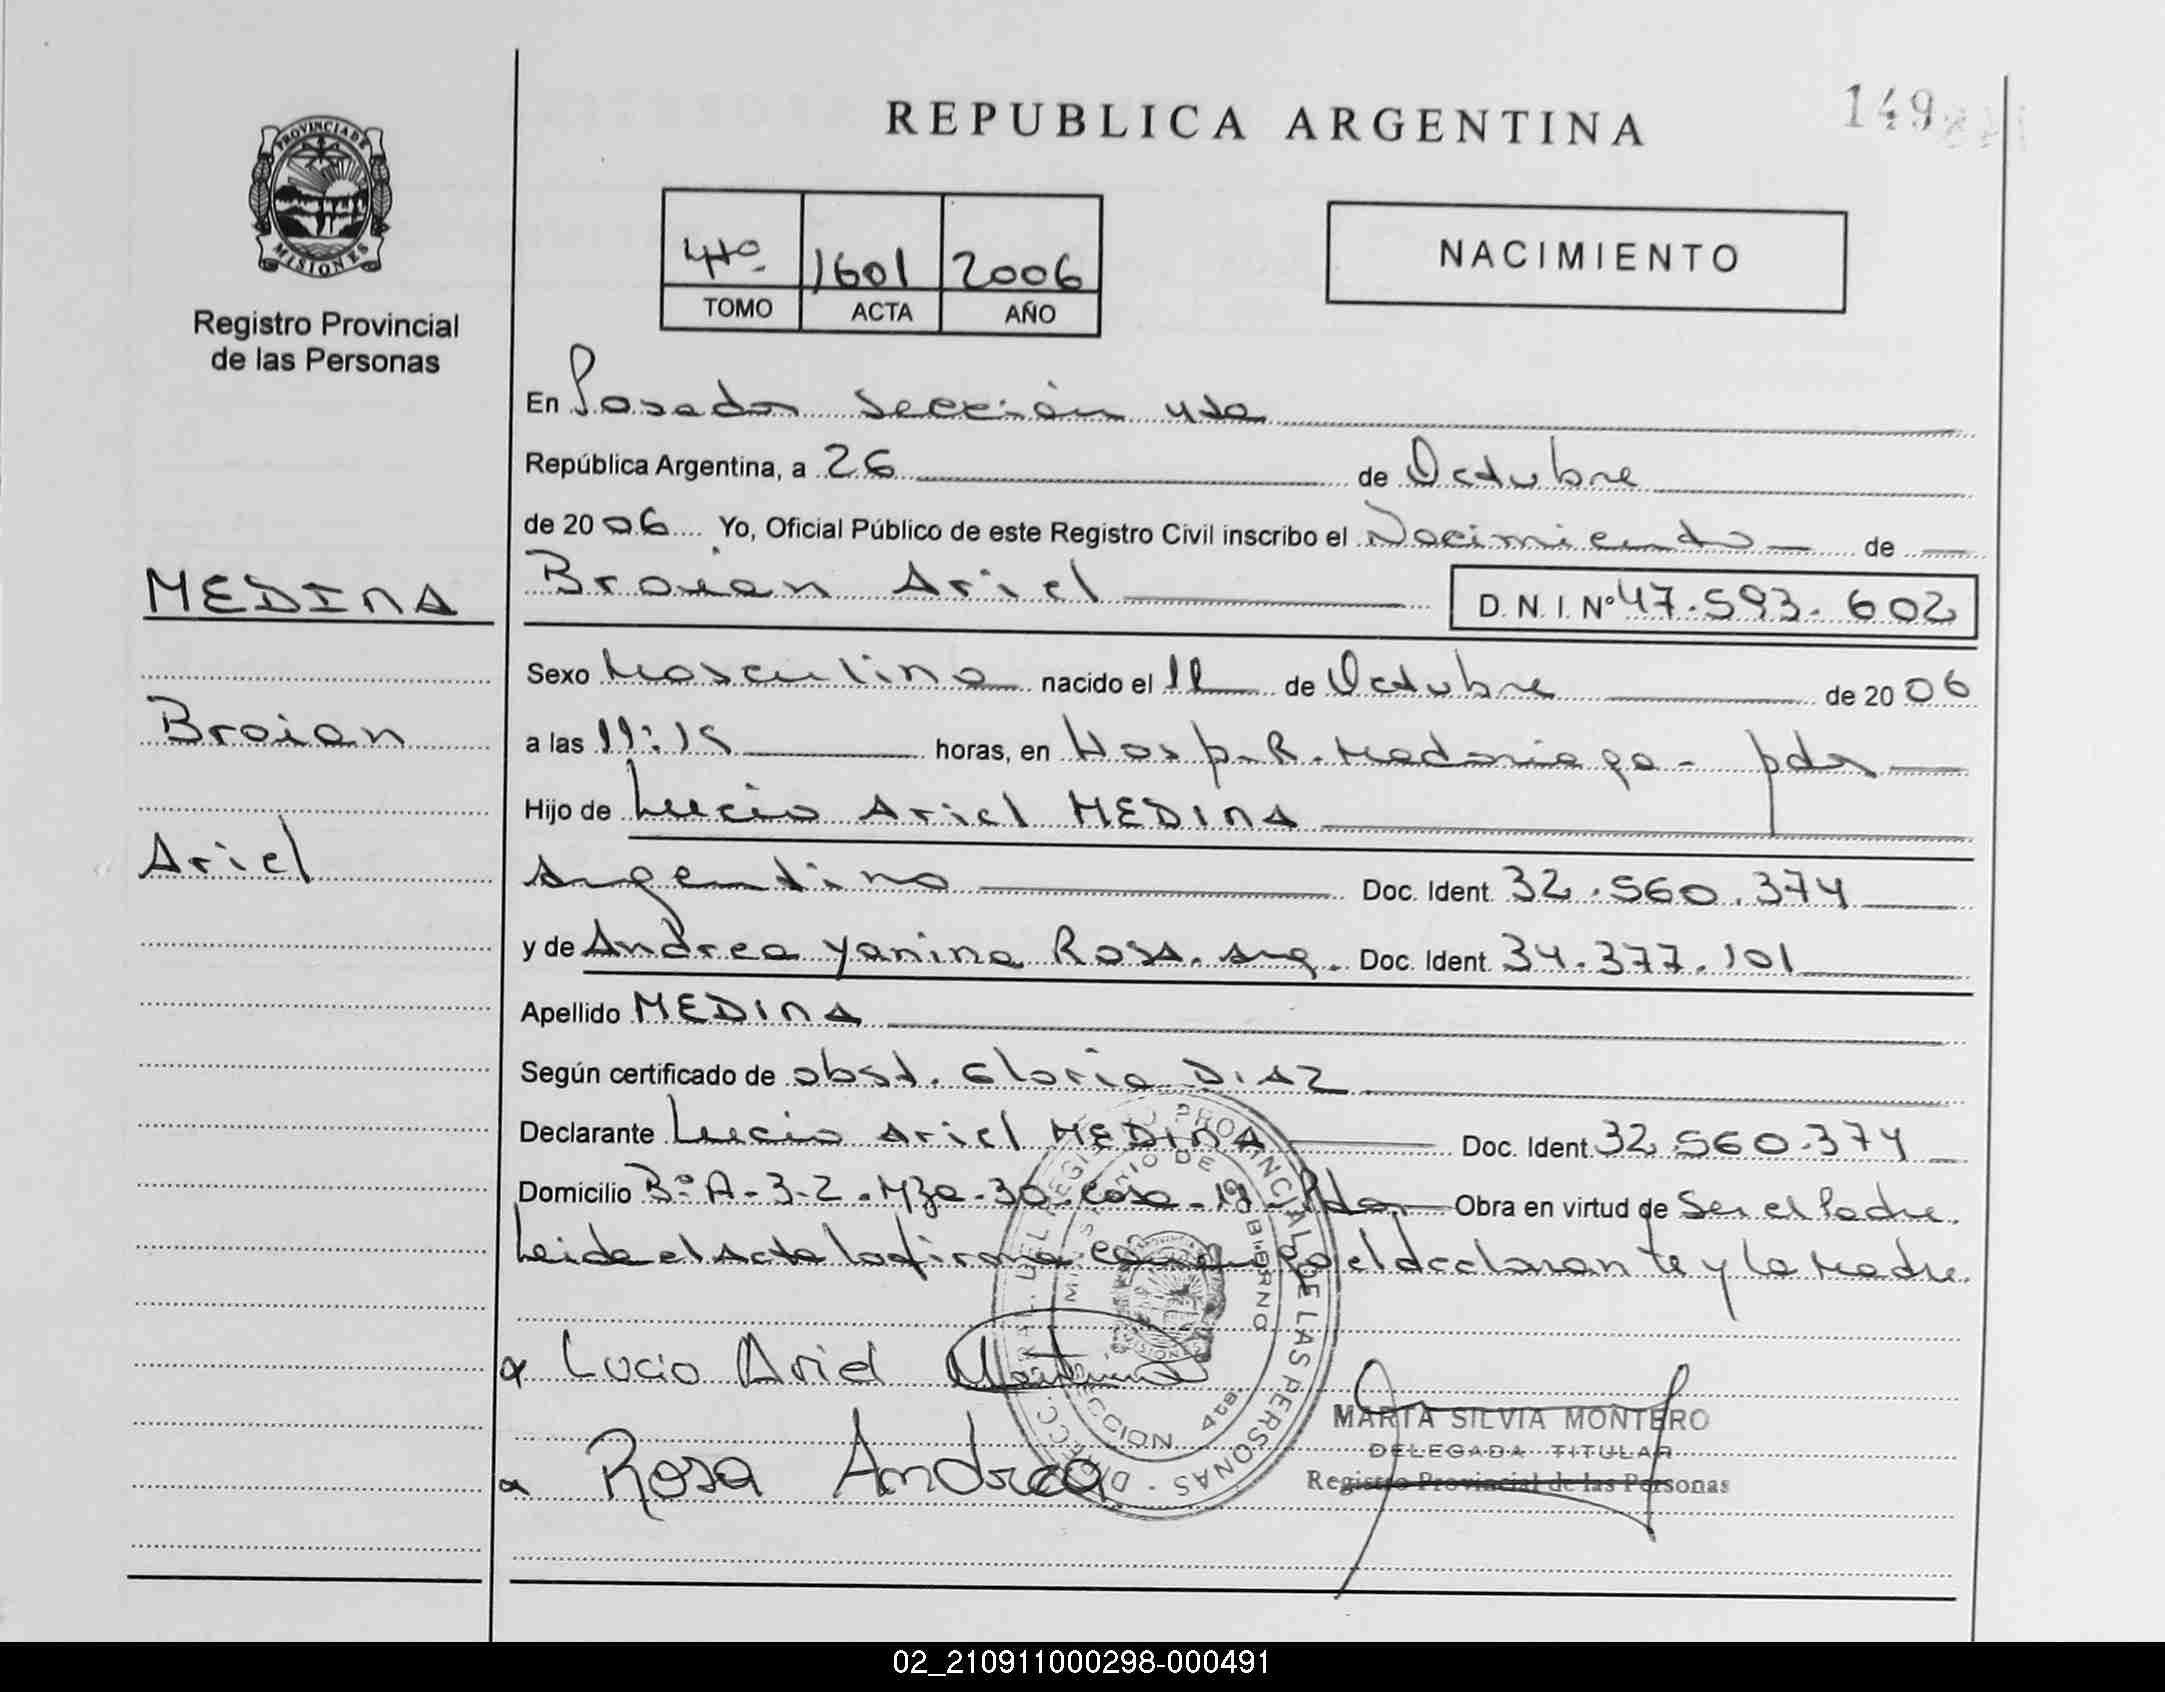 REPUBLICA ARGENTINA
149
PROVINCIA DE
MISIONES
Registro Provincial
de las Personas
4to. 1601 2006
TOMO ACTA AÑO
NACIMIENTO
En Posadas Sección 4ta
República Argentina, a 26 de Octubre
de 2006 Yo, Oficial Público de este Registro Civil inscribo el Nacimiento de
MEDINA
Braian Ariel D.N.I. Nº 47.593.602
Sexo Masculino nacido el 11 de Octubre de 2006
Braian
a las 11:15 horas, en Hosp. R. Madariaga - pdas
Hijo de Lucio Ariel MEDINA
Ariel
Argentino Doc. Ident. 32.560.374
y de Andrea Yanina ROSA. arg. Doc. Ident. 34.377.101
Apellido MEDINA
Según certificado de obst. Gloria DIAZ
Declarante Lucio Ariel MEDINA Doc. Ident. 32.560.374
Domicilio Bº A-3-2. Mza-30. casa-19. Pdas Obra en virtud de Ser el Padre.
Leida el Acta la firma conmigo el declarante y la Madre.
DIRECC. GRAL. DEL REGISTRO PROVINCIAL DE LAS PERSONAS
MINISTERIO DE GOBIERNO
SECCION 4ta.
x Lucio Ariel
x Rosa Andrea
MARTA SILVIA MONTERO
DELEGADA TITULAR
Registro Provincial de las Personas
02_210911000298-000491